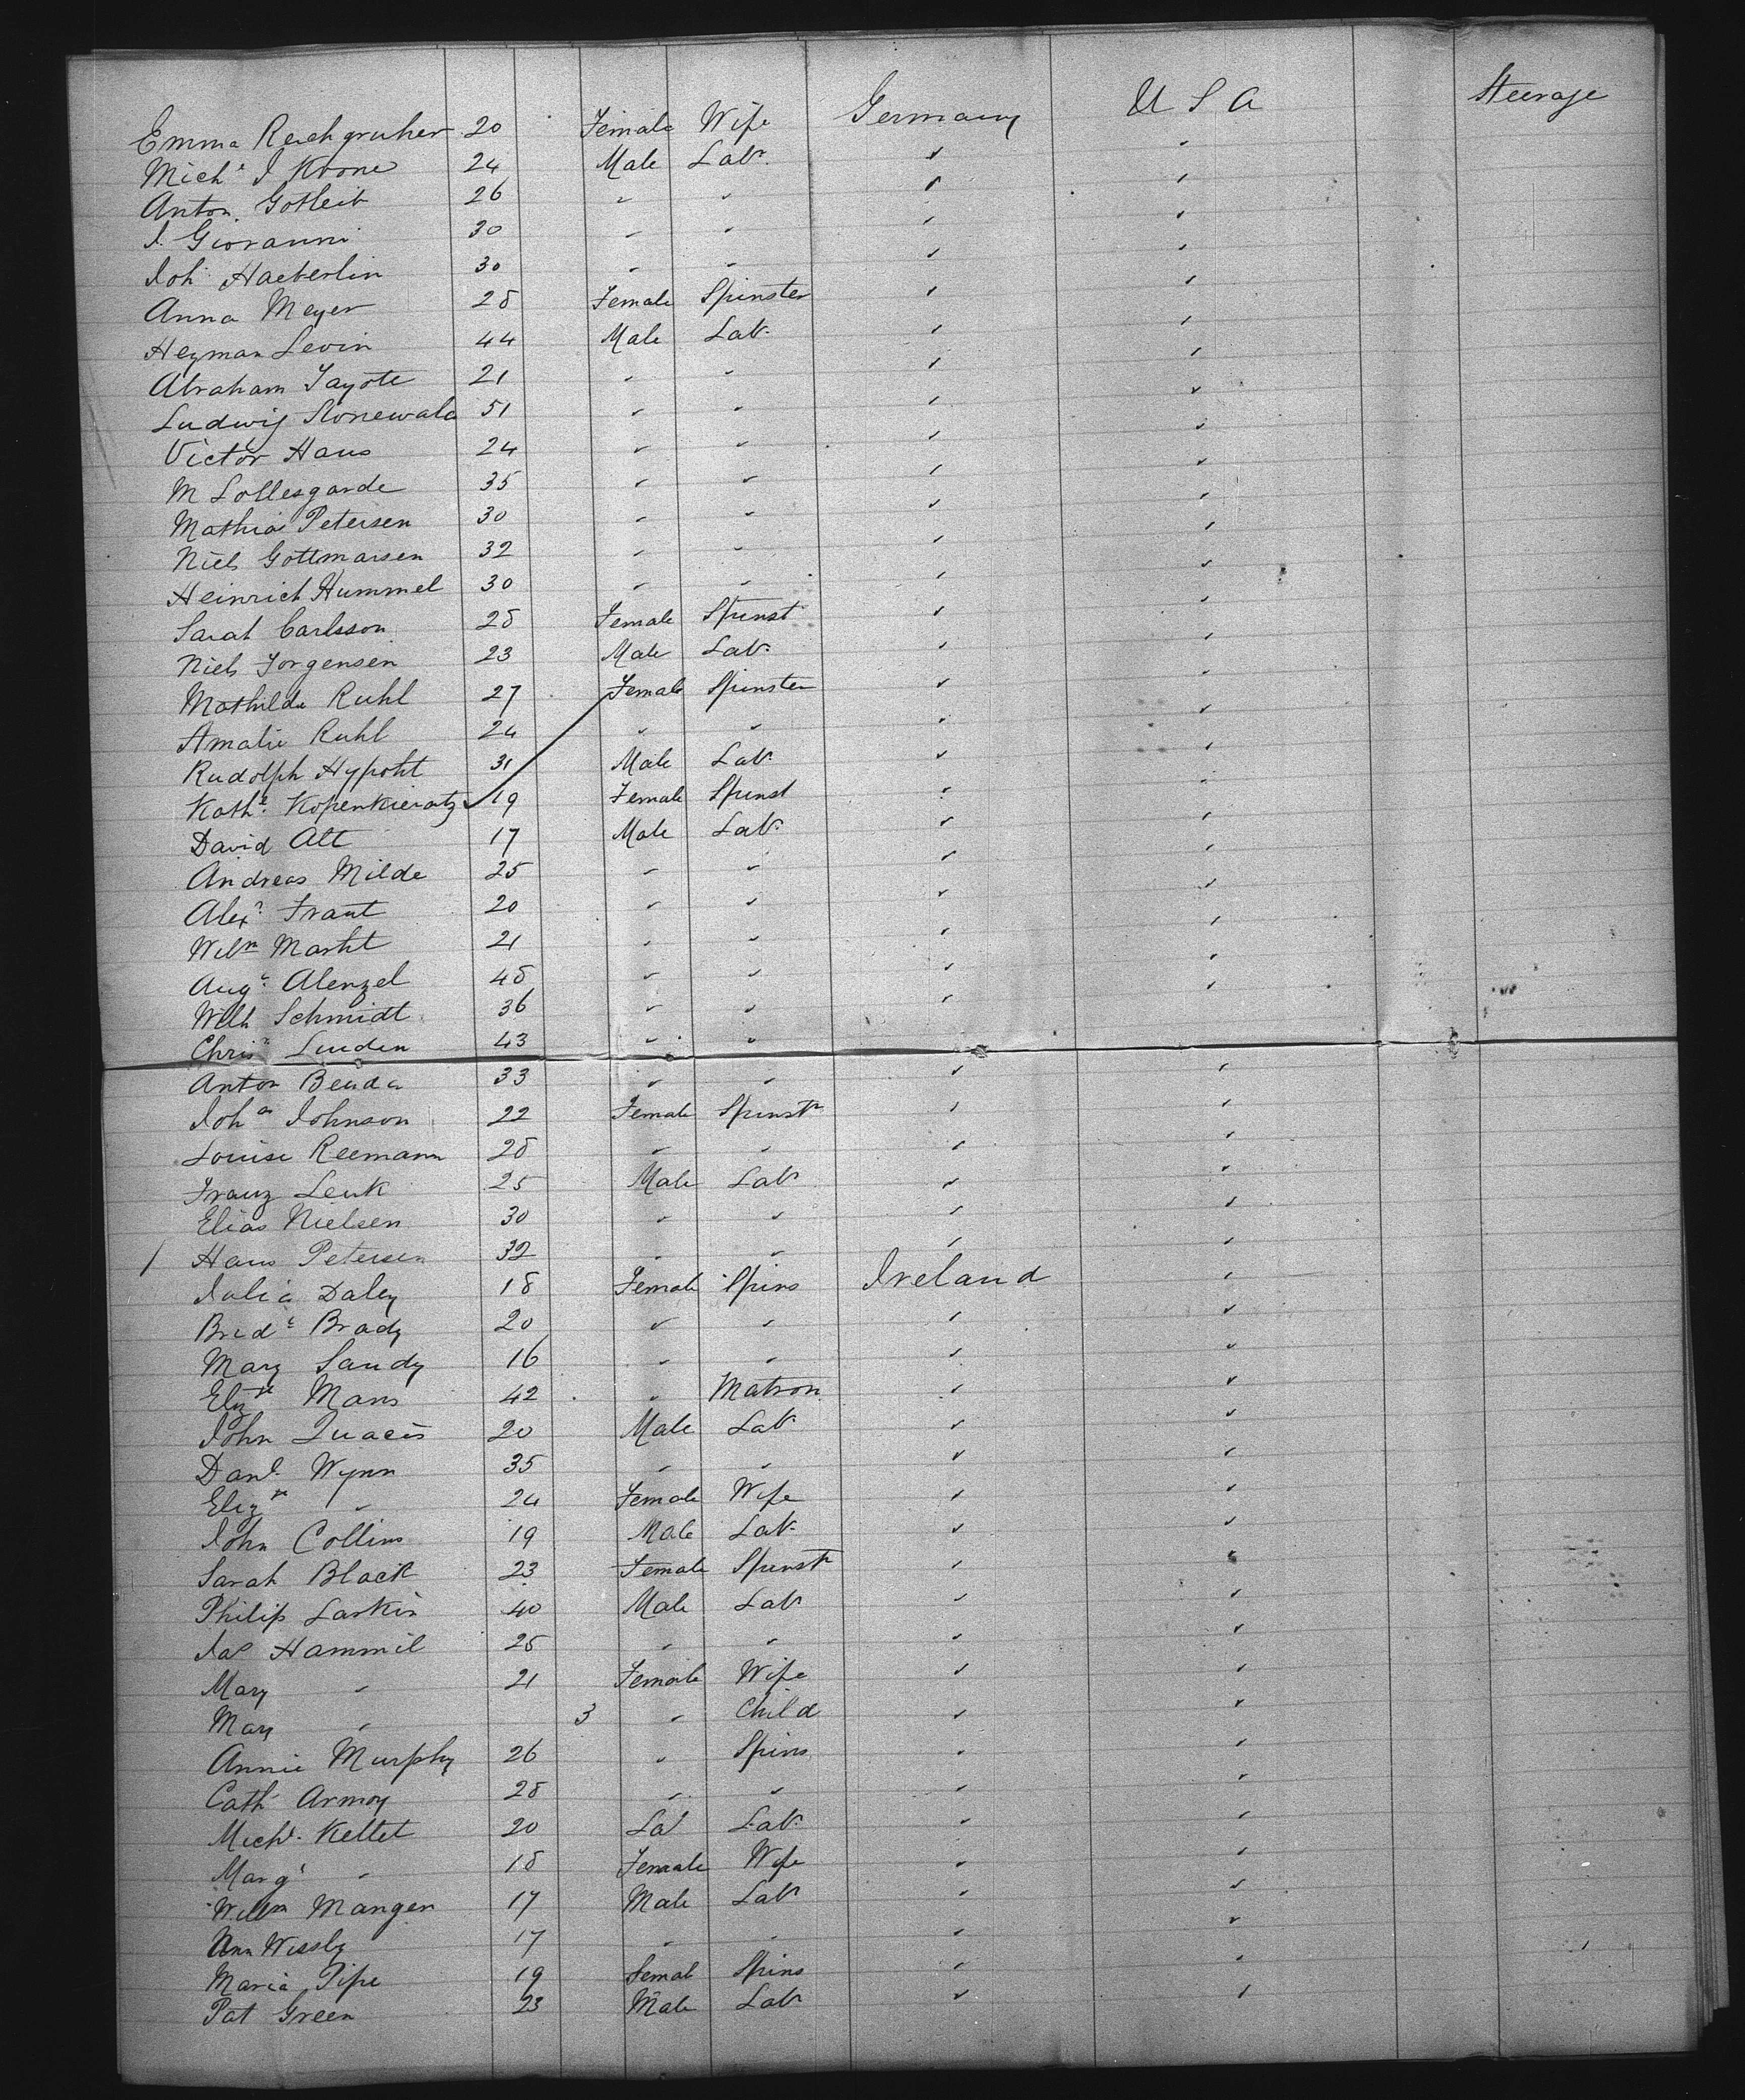 Emma Reichgruher 20 Female Wife Germany U S A Steerage
Mich.l J Krone 24 Male Labr. " "
Anton Gotleib 26 " " " "
J. Giovanni 30 " " " "
Joh. Haeberlin 30 " " " "
Anna Meyer 28 Female Spinster " "
Heyman Levin 44 Male Labr. " "
Abraham Jayote 21 " " " "
Ludwig Stonewald 51 " " " "
Victor Haus 24 " " " "
M Lollesgarde 35 " " " "
Mathias Petersen 30 " " " "
Niels Gottmarsen 32 " " " "
Heinrich Hummel 30 " " " "
Sarah Carlsson 28 Female Spinst " "
Niels Jorgensen 23 Male Labr. " "
Mathilda Ruhl 27 Female Spinster " "
Amalie Ruhl 24 " " " "
Rudolph Hypoht 31 Male Labr " "
Kath.e Kopenkieratz 19 Female Spinst " "
David Alt 17 Male Labr. " "
Andreas Milde 25 " " " "
Alexr. Traut 20 " " " "
Wilm Markt 21 " " " "
Augt. Alenzel 48 " " " "
Wilh Schmidt 36 " " " "
Chrisn Linden 43 " "
Anton Benda 33 " " " "
Joha Johnson 22 Female Spinstr " "
Louise Reemann 28 " " " "
Franz Lenk 25 Male Labr " "
Elias Nielsen 30 " " " "
/ Hans Petersen 32 " " " "
Julia Daley 18 Female Spins Ireland "
Bridt Brady 20 " " " "
Mary Sandy 16 " " " "
Elizth Mans 42 " Matron " "
John 20 Male Labr " "
Danl. Wynn 35 " " " "
Elizth " 24 Female Wife " "
John Collins 19 Male Labr " "
Sarah Black 23 Female Spinstr " "
Philip Larkin 40 Male Labr " "
Jas Hammil 25 " " " "
Mary " 21 Female Wife " "
Mary " 3 " Child " "
Annie Murphy 26 " Spins " "
Cath Armoy 28 " " " "
Michl. Kellet 20 La Labr " "
Margt " 18 Female Wife " "
Willm Mangen 17 Male Labr " "
Ann Wissly 17 " " " "
Maria Pipe 19 Femal Spins " "
Pat Green 23 Male Labr " "